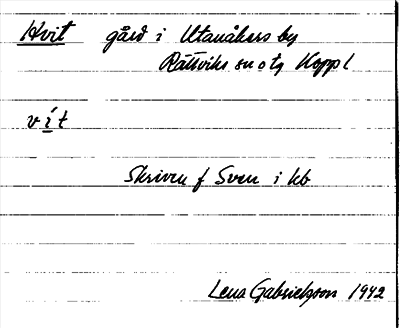 Hvit gård i Utanåkers by
Rättviks sn o tg Koppl
vít
Skriven f Sven i kb
Lena Gabrielsson 1942